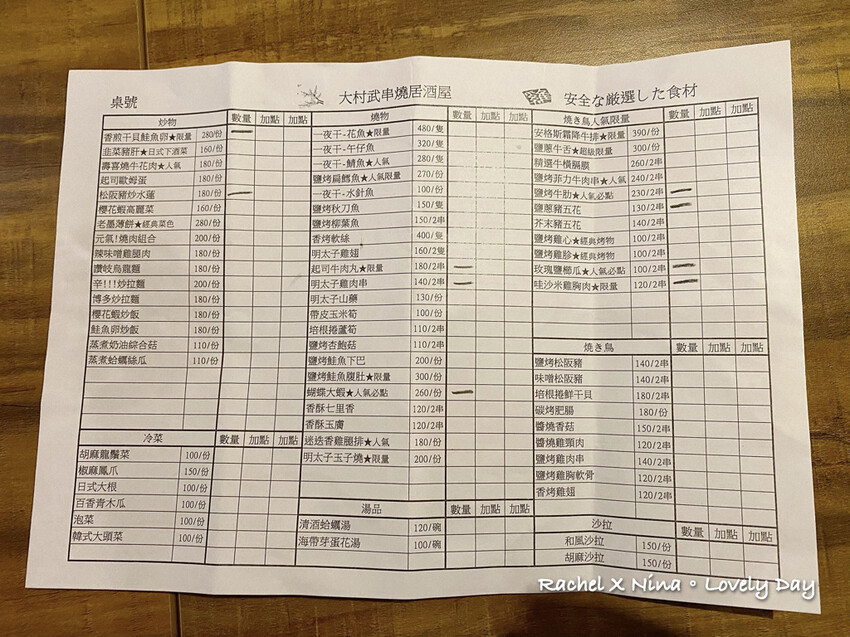 桌號
大村武串燒居酒屋
安全な厳選した食材
炒物 數量 加點 加點
香煎干貝鮭魚卵★限量 280/份
韭菜豬肝★日式下酒菜 160/份
壽喜燒牛花肉★人氣 180/份
起司歐姆蛋 180/份
松阪豬炒水蓮 180/份
櫻花蝦高麗菜 160/份
老墨薄餅★經典菜色 280/份
元氣!燒肉組合 200/份
辣味噌雞腿肉 180/份
讚岐烏龍麵 180/份
辛!!!炒拉麵 200/份
博多炒拉麵 180/份
櫻花蝦炒飯 180/份
鮭魚卵炒飯 180/份
蒸煮奶油綜合菇 110/份
蒸煮蛤蠣絲瓜 110/份
冷菜 數量 加點 加點
胡麻龍鬚菜 100/份
椒麻鳳爪 150/份
日式大根 100/份
百香青木瓜 100/份
泡菜 100/份
韓式大頭菜 100/份
燒物 數量 加點 加點
一夜干-花魚★限量 480/隻
一夜干-午仔魚 320/隻
一夜干-鯖魚★人氣 280/隻
鹽烤扁鱈魚★人氣限量 270/份
一夜干-水針魚 100/份
鹽烤秋刀魚 150/隻
鹽烤柳葉魚 150/2串
香烤軟絲 400/隻
明太子雞翅 160/2隻
起司牛肉丸★限量 180/2串
明太子雞肉串 140/2串
明太子山藥 130/份
帶皮玉米筍 100/份
培根捲蘆筍 110/2串
鹽烤杏鮑菇 110/2串
鹽烤鮭魚下巴 200/份
鹽烤鮭魚腹肚★限量 300/份
蝴蝶大蝦★人氣必點 260/份
香酥七里香 120/2串
香酥玉膚 120/2串
迷迭香雞腿排★人氣 180/份
明太子玉子燒★限量 200/份
湯品 數量 加點 加點
清酒蛤蠣湯 120/碗
海帶芽蛋花湯 100/碗
焼き鳥人氣限量 數量 加點 加點
安格斯霜降牛排★限量 390/份
鹽蔥牛舌★超級限量 300/份
精選牛橫膈膜 260/2串
鹽烤菲力牛肉串★人氣 240/2串
鹽烤牛肋★人氣必點 230/2串
鹽蔥豬五花 130/2串
芥末豬五花 140/2串
鹽烤雞心★經典烤物 100/2串
鹽烤雞胗★經典烤物 100/2串
玫瑰鹽櫛瓜★人氣必點 100/2串
哇沙米雞胸肉★限量 120/2串
焼き鳥 數量 加點 加點
鹽烤松阪豬 140/2串
味噌松阪豬 140/2串
培根捲鮮干貝 180/2串
碳烤肥腸 180/份
醬燒香菇 150/2串
醬燒雞頸肉 120/2串
鹽烤雞肉串 140/2串
鹽烤雞胸軟骨 120/2串
香烤雞翅 120/2串
沙拉 數量 加點 加點
和風沙拉 150/份
胡麻沙拉 150/份
Rachel X Nina。Lovely Day